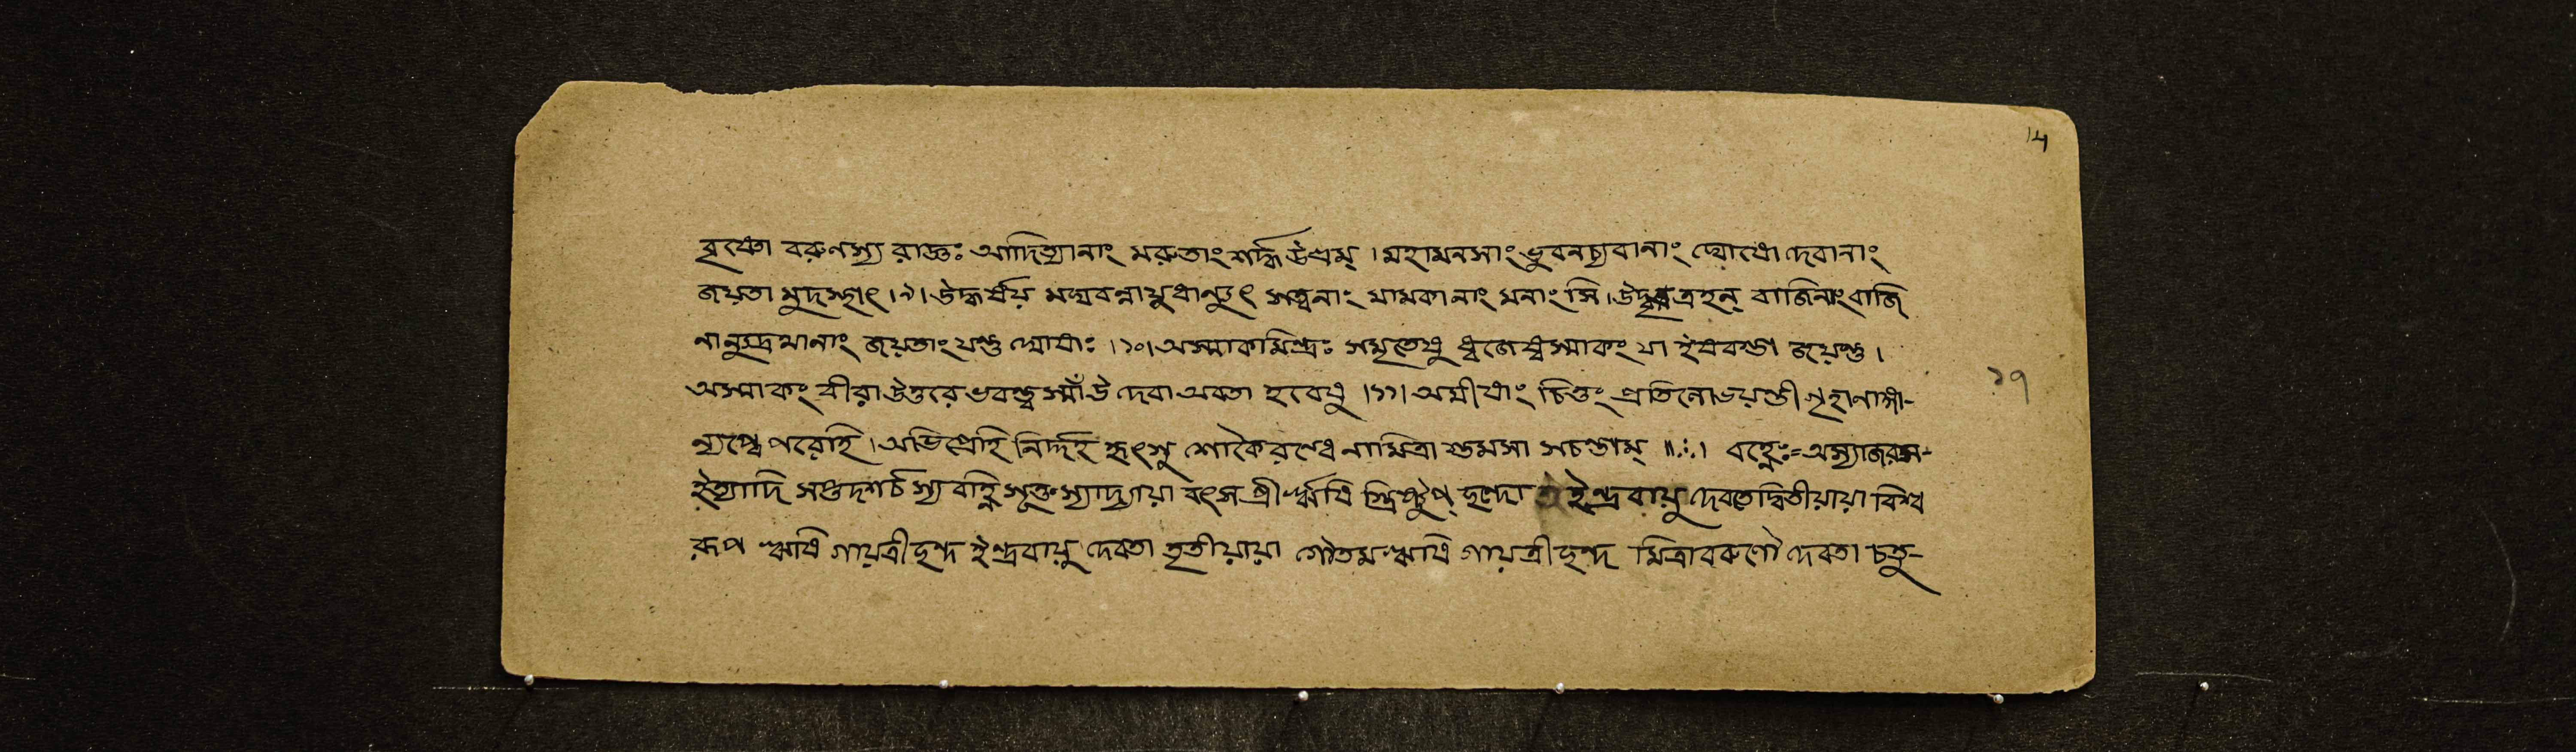 14
বৃষ্ণো বরুণস্য রাজ্ঞঃ আদিত্যানাং মরুতাং শর্দ্ধ উগ্রম্ । মহামনসাং ভুবনচ্যবানাং ঘোষো দেবানাং
জয়তা মুদস্থাৎ ।৯। উদ্ধর্ষয় মঘবন্নায়ুধান্যুৎ সত্বনাং মামকানাং মনাংসি । উদ্বৃত্রহন্ বাজিনাং বাজি
নান্যুদ্রথানাং জয়তাং যন্তু ঘোষাঃ ।১০। অস্মাকমিন্দ্রঃ সমৃতেষু ধ্বজেষ্বস্মাকং যা ইষবস্তা জয়ন্তু ।
১৭
অস্মাকং বীরা উত্তরে ভবন্ত্বস্মাঁ উ দেবা অবতা হবেষু ।১১। অমীষাং চিত্তং প্রতিলোভয়ন্তী গৃহাণাঙ্গা-
ন্যপ্বে পরেহি । অভিপ্রেহি নির্দ্দহ হৃৎসু শোকৈরন্ধেনামিত্রা স্তমসা সচন্তাম্ ॥ঃ। বহ্নেঃ = অস্যাজরাস-
ইত্যাদি সপ্তদশর্চ স্য বহ্নি সূক্ত স্যাদ্যায়া বৎস প্রীর্ঋষি স্ত্রিষ্টুপ্ ছন্দো ইন্দ্রবায়ু দেবতে দ্বিতীয়ায়া বিশ্ব
রূপ ঋষি গায়ত্রী ছন্দ ইন্দ্রবায়ু দেবতা তৃতীয়ায়া গৌতম ঋষি গায়ত্রী ছন্দ মিত্রাবরুণৌ দেবতা চতু-